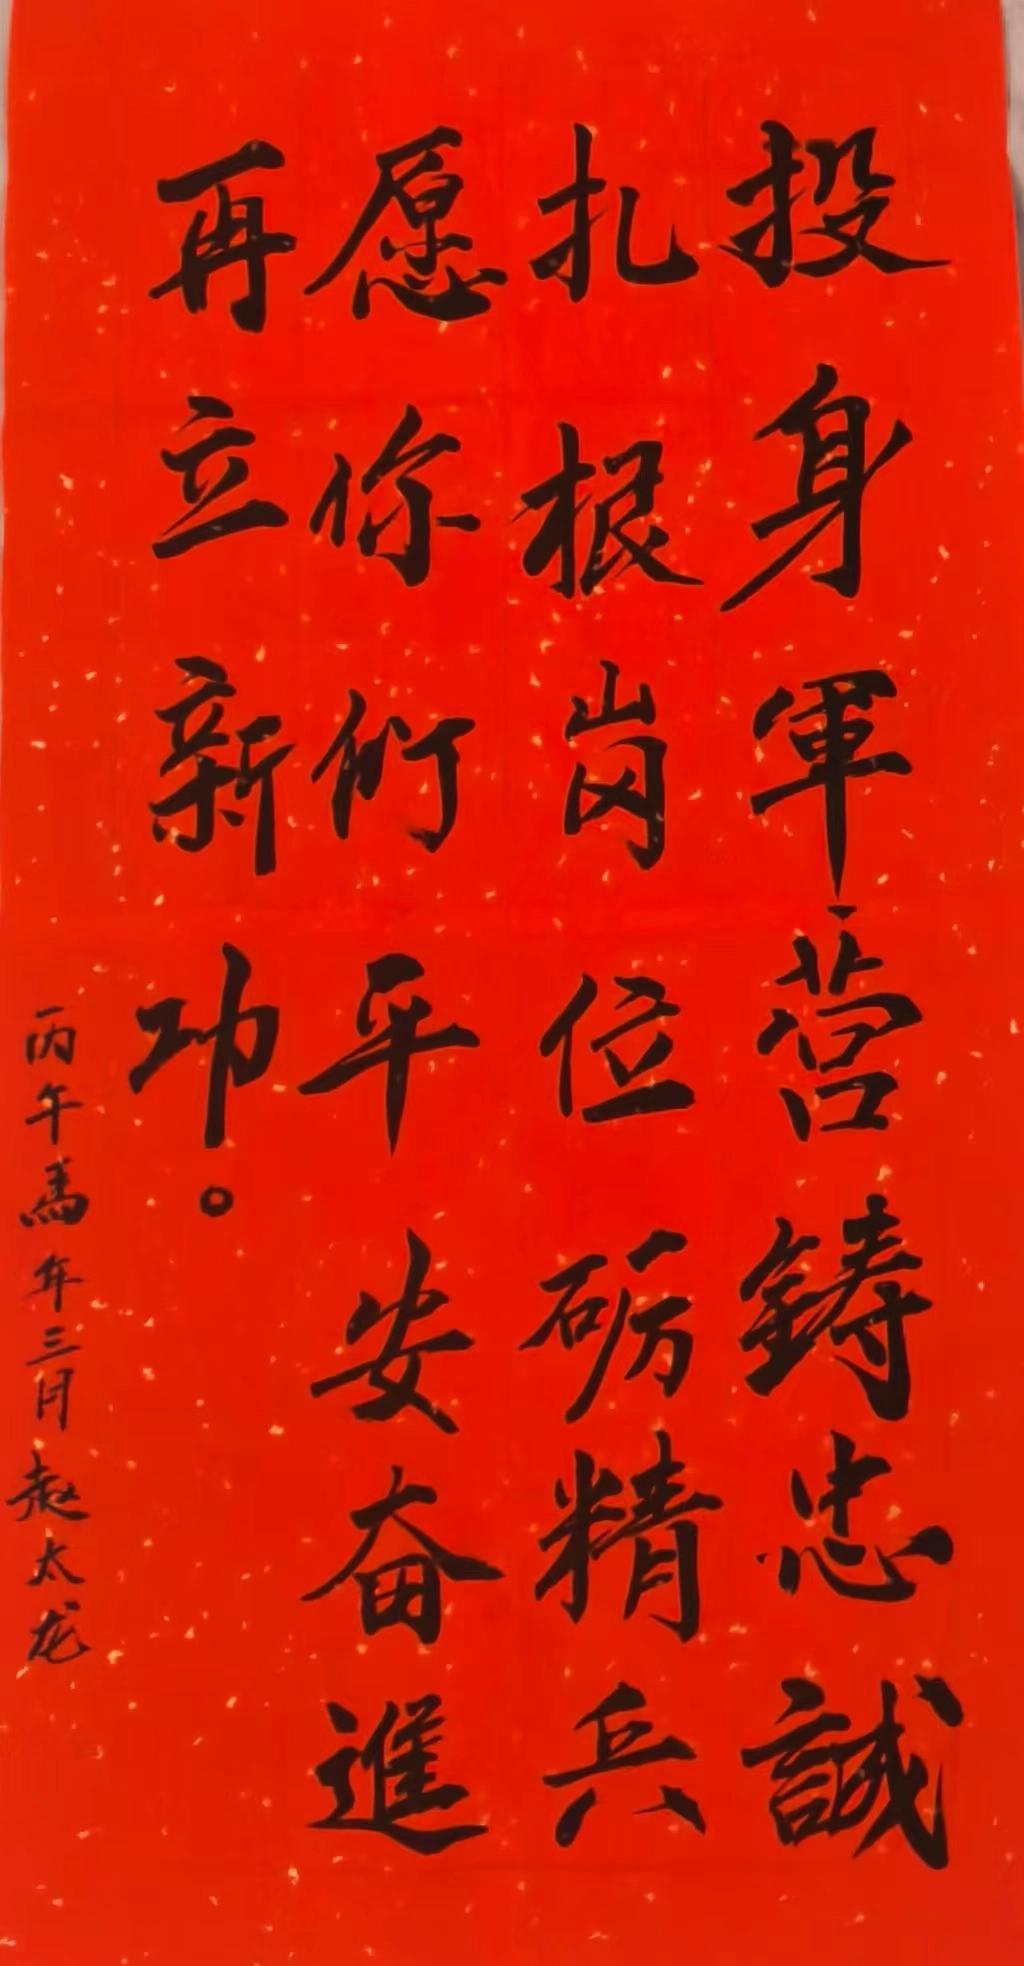 投身軍营鋳忠誠
扎根岗位砺精兵
愿你们平安奋進
再立新功。
丙午馬年三月赵太龙